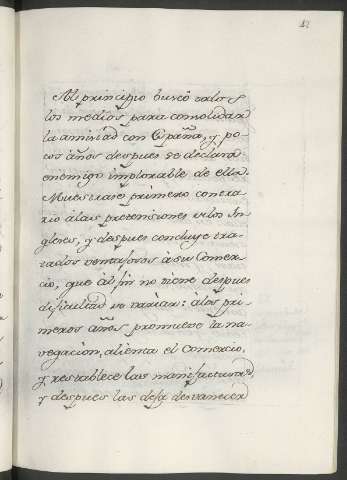 12
Al principio buscó todos
los medios para consolidar
la amistad con España, y po-
cos años despues se declara
enemigo implorable de ella.
Muestrase primero contra-
rio á las pretensiones de los In-
gleses, y despues concluye tra-
tados ventajosos á su Comer-
cio, que al fin no tiene despues
dificultad de variar: á los pri-
meros años promueve la na-
vegacion, alienta el Comercio,
y restablece las manifacturas,
y despues las dexa desvanecer